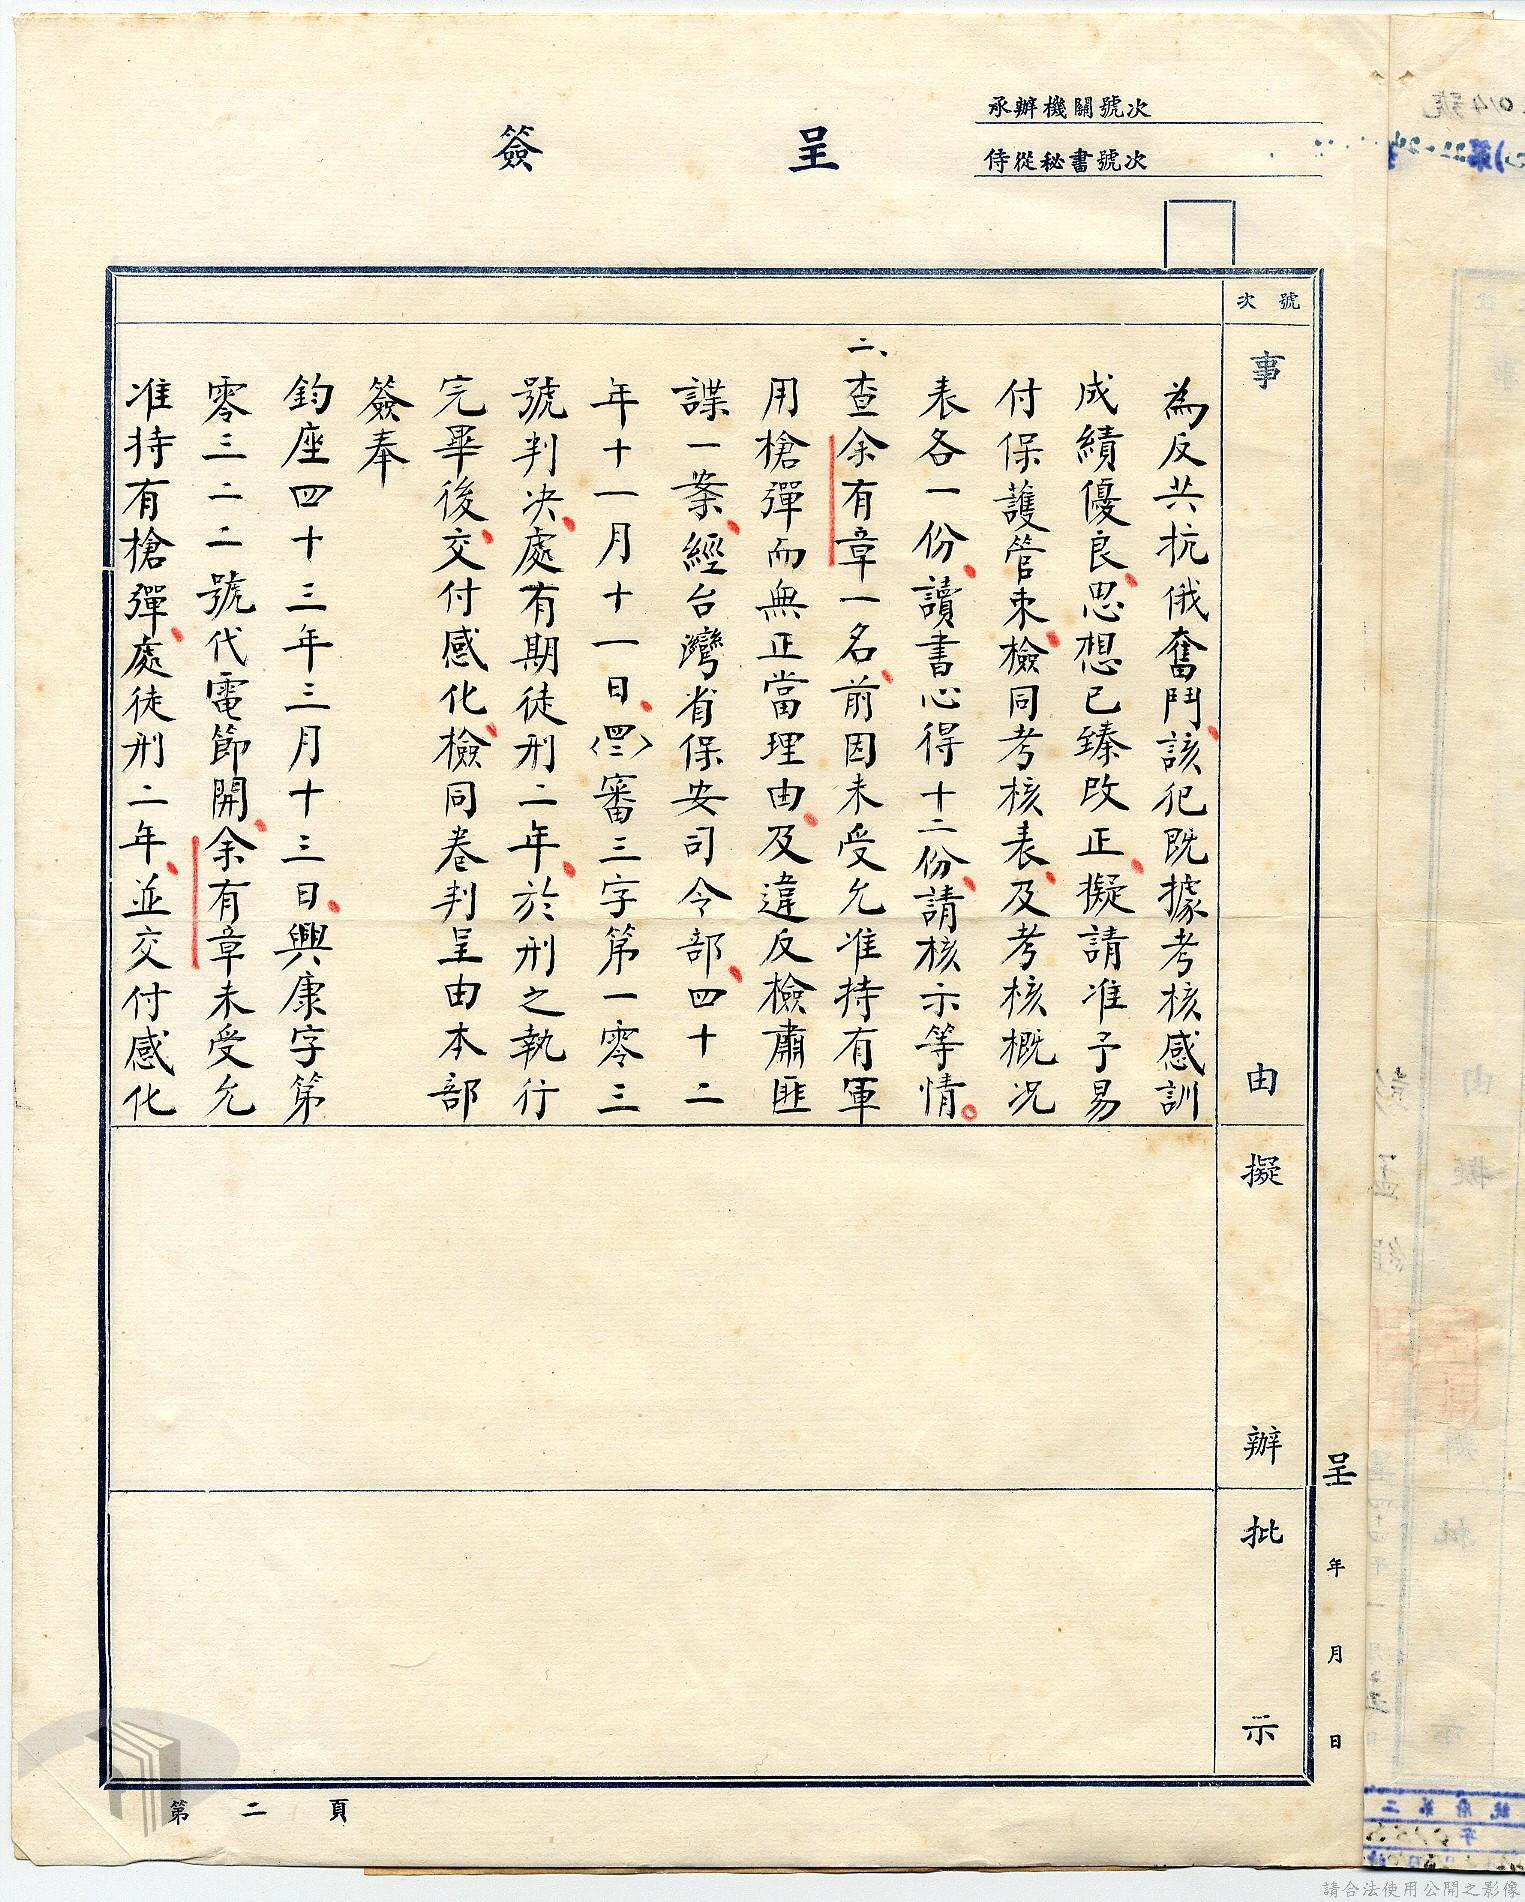 承辦機關號次
侍從秘書號次
簽呈
號次
事由
為反共抗俄奮鬥、該犯既據考核感訓
成績優良、思想已臻改正、擬請准予易
付保護管束、檢同考核表、及考核概況
表各一份、讀書心得十二份、請核示等情。
二、查余有章一名、前因未受允准持有軍
用槍彈而無正當理由、及違反檢肅匪
諜一案、經台灣省保安司令部、四十二
年十一月十一日、〈四二〉審三字第一零三
號判決、處有期徒刑二年、於刑之執行
完畢後、交付感化、檢同卷判呈由本部
簽奉
鈞座四十三年三月十三日、興康字第
零三二二號代電節開、余有章未受允
准持有槍彈、處徒刑二年、並交付感化
擬辦
批示
呈 年 月 日
第二頁
請合法使用公開之影像